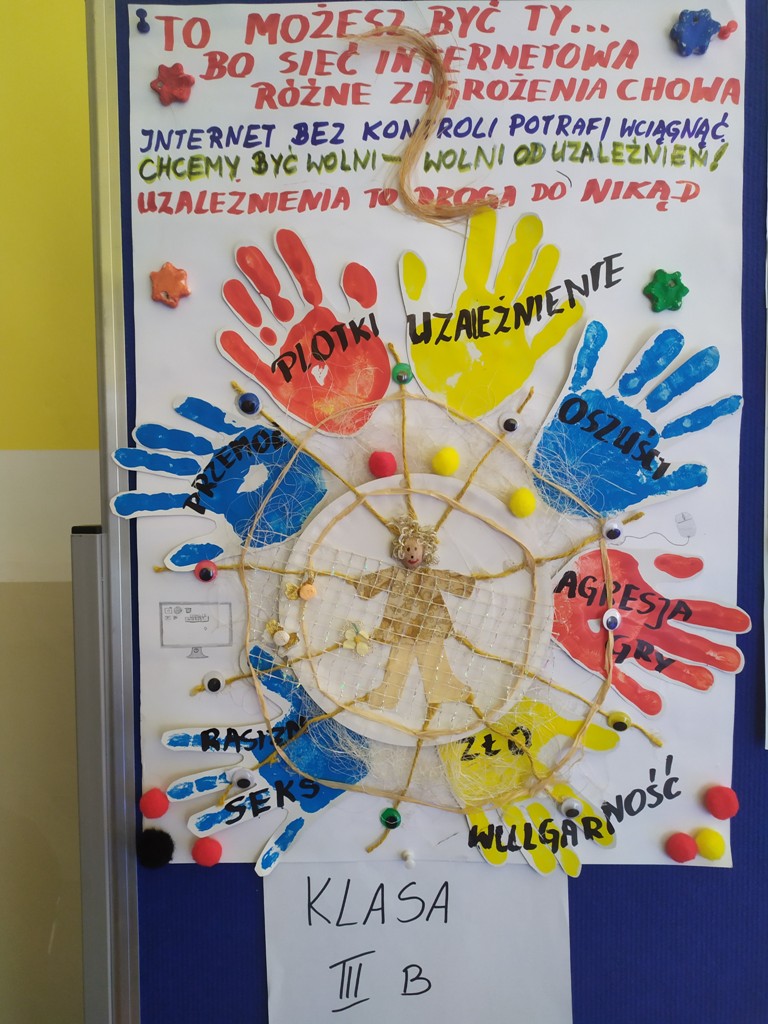 TO MOŻESZ BYĆ TY...
BO SIEĆ INTERNETOWA
RÓŻNE ZAGROŻENIA CHOWA
INTERNET BEZ KONTROLI POTRAFI WCIĄGNĄĆ
CHCEMY BYĆ WOLNI – WOLNI OD UZALEŻNIEŃ!
UZALEŻNIENIA TO DROGA DO NIKĄD
PLOTKI
UZALEŻNIENIE
PRZEMOC
OSZUŚCI
AGRESJA
GRY
RASIZM
SEKS
ZŁO
WULGARNOŚĆ
KLASA
III B